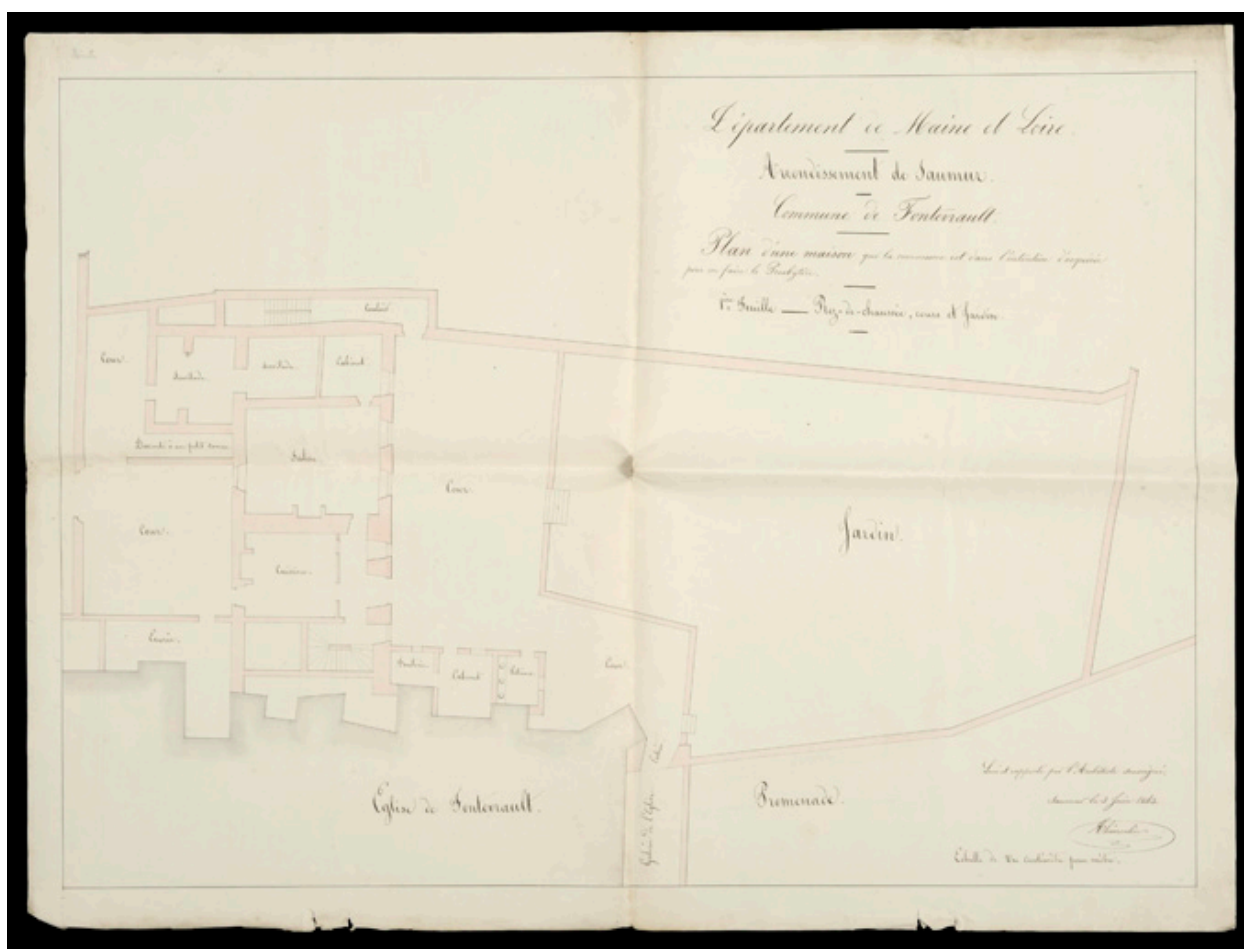 Département de Maine et Loire.
Arrondissement de Saumur.
Commune de Fontevrault.
Plan d'une maison que la commune est dans l'intention d'acquérir
pour en faire le Presbytère.
1ère Feuille — Rez-de-chaussée, cours et Jardin.
Couloir
Cour.
Cabinet.
Descente à un petit caveau
Salon
Cour.
Cour.
Jardin.
Cuisine.
Cour.
Cabinet
Latrines
Eglise de Fontevrault.
Galerie de l'Eglise
Promenade.
Levé et rapporté par l'Architecte soussigné.
Saumur le
Echelle de un centimètre pour mètre.